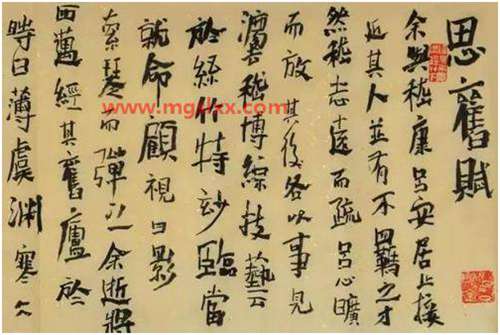 思舊賦
余與嵇康呂安居止接
近其人並有不羈之才
然嵇志遠而疏呂心曠
而放其後各以事見
灋嵇博綜技藝
於絲竹特妙臨當
就命顧視日影
索琴而彈之余逝將
西邁經其舊廬於
時日薄虞淵寒